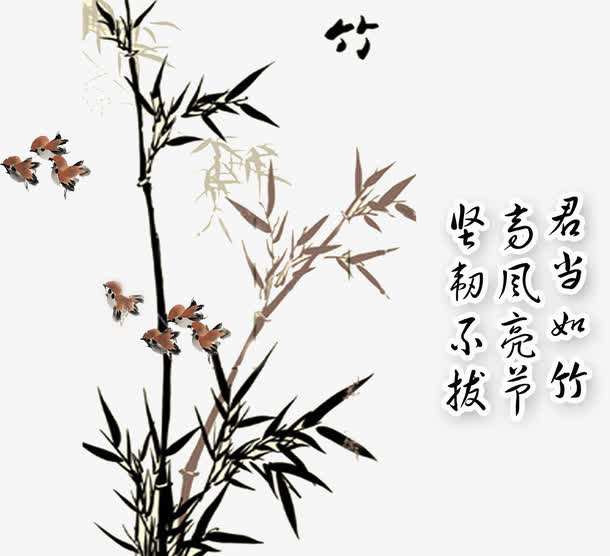 竹
君当如竹
高风亮节
坚韧不拔